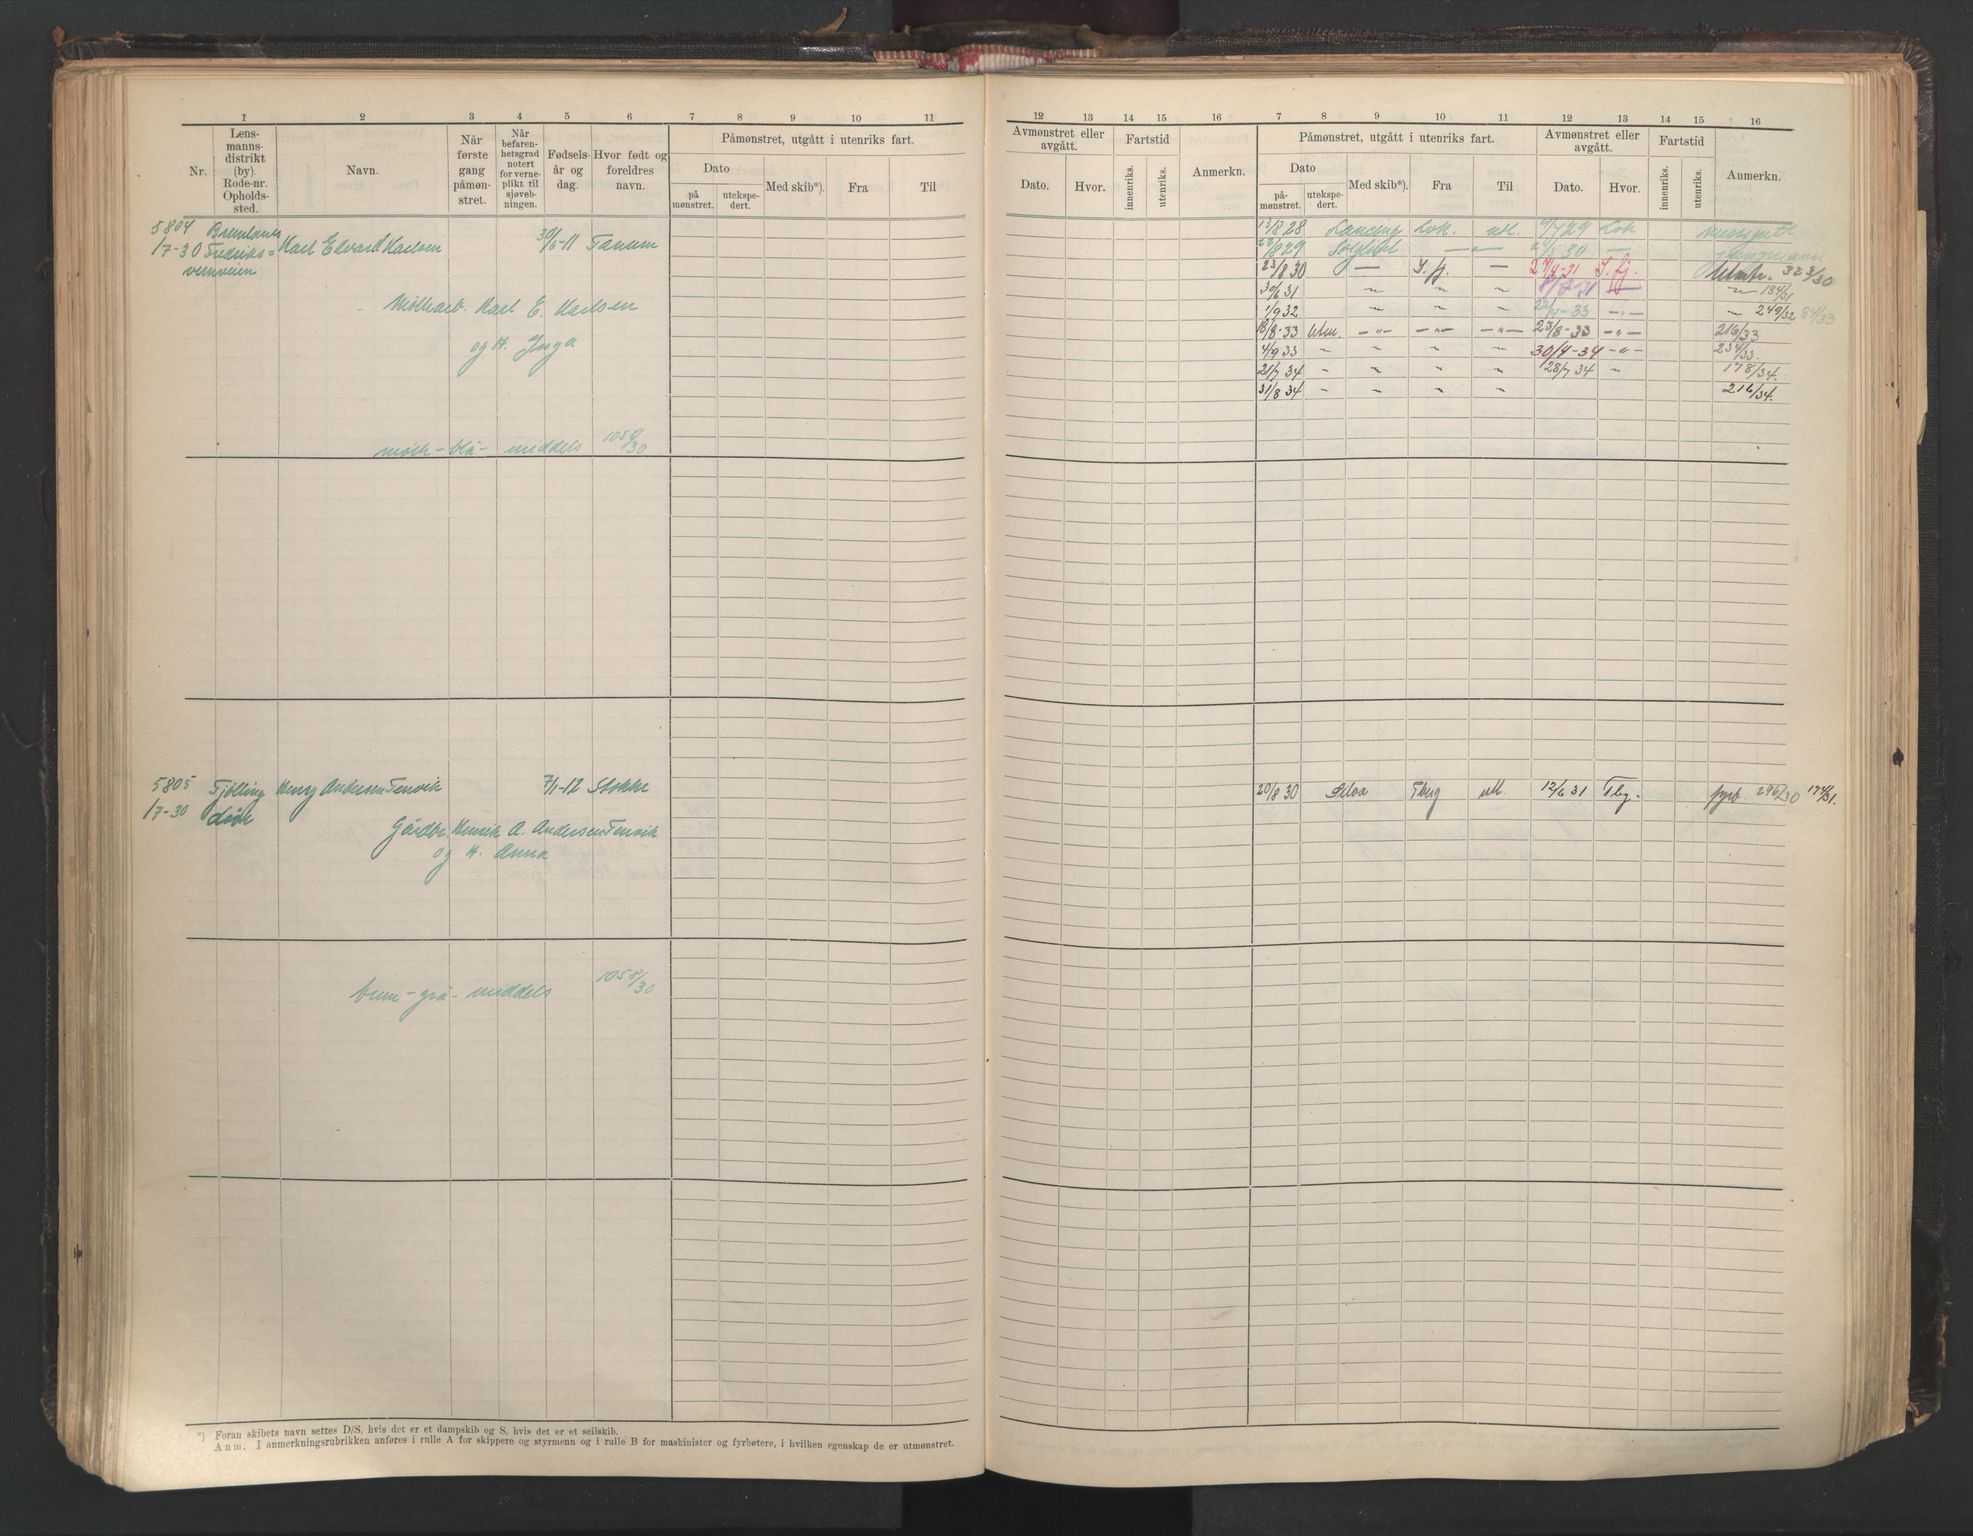 1 2 3 4 5 6 7 8 9 10 11
Nr.
Lens-
manns-
distrikt
(by)
Rode-nr.
Opholds-
sted.
Navn.
Når
første
gang
påmøn-
stret.
Når
befaren-
hetsgrad
notert
for verne-
plikt til
sjøveb-
ningen.
Fødsels-
år og
dag.
Hvor født og
foreldres
navn.
Påmønstret, utgått i utenriks fart.
Dato
på
mønstret.
utekspe-
dert.
Med skib*).
Fra
Til
5804 Brunlanes
1/7-30 Fredriks= Karl Edvard Karlsen 30/5-11 Tanum
vernveien
Møllearb. Karl E. Karlsen
og H. Inga
mørk - blå - middels 1058/30
5805 Tjølling Henry Andersen Tenvik 7/1-12 Stokke
1/7-30
Gårdbr. Henrik A. Andersen Tenvik
og H. Anna
brun - grå - middels 1058/30
*) Foran skibets navn settes D/S, hvis det er et dampskib og S, hvis det er et seilskib.
Anm. I anmerkningsrubrikken anføres i rulle A for skippere og styrmenn og i rulle B for maskinister og fyrbøtere, i hvilken egenskap de er utmønstret.
12 13 14 15 16 7 8 9 10 11 12 13 14 15 16
Avmønstret eller
avgått.
Dato.
Hvor.
Fartstid
innenriks.
utenriks.
Anmerkn.
Påmønstret, utgått i utenriks fart.
Dato
på-
mønstret.
utekspe-
dert.
Med skib*).
Fra
Til
Avmønstret eller
avgått.
Dato.
Hvor.
Fartstid
innenriks.
utenriks.
Anmerkn.
13/8 28 Lancing Lvk. utl. 29 Lvk messgutt
22/8 29 Solglimt — " — 30 — jungmann
23/8 30 — S. fj. — 27/4-31 S. fj. 323/30
30/6 31 " " " — " 184/31
1/9 32 " " " 33 — " — " 249/32 84/33
18/8-33 — " — — " — — " — 23/8-33 — " — 216/33
4/9 33 " " " " 30/4-34 — " — 234/33.
21/7 34 " " " " 28/7 34 " 178/34.
31/8 34 " " " " 216/34.
20/8 30 Tbg utl. 12/6 31 Tbg. fyrb. 296/30